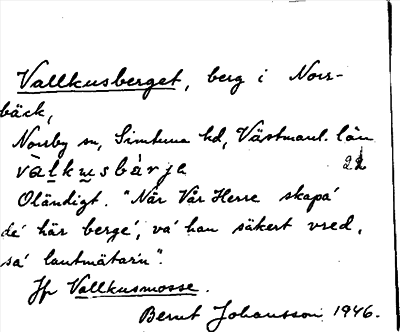 Vallkusberget, berg i Norr-
bäck,
Norrby sn, Simtuna hd, Västmanl. län
vàlkusbärje 22
Oländigt. "När Vår Herre skapa'
de' här berge', va' han säkert vred,
sa' lantmätarn".
Jfr Vallkusmosse.
Bernt Johansson 1946.